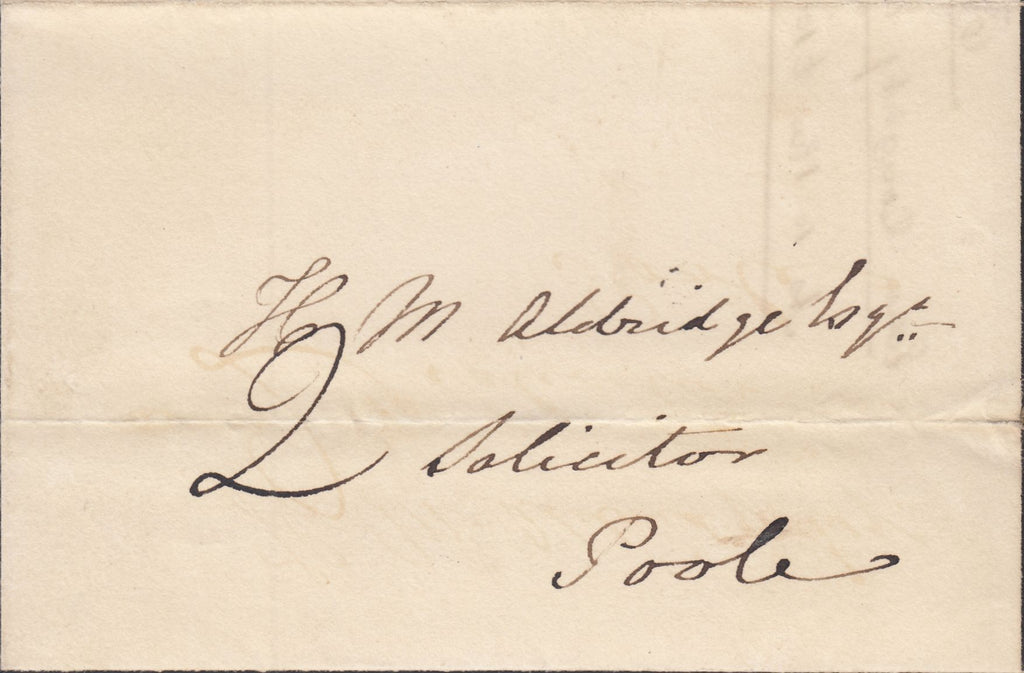 H M Aldridge Esqr
2
Solicitor
Poole